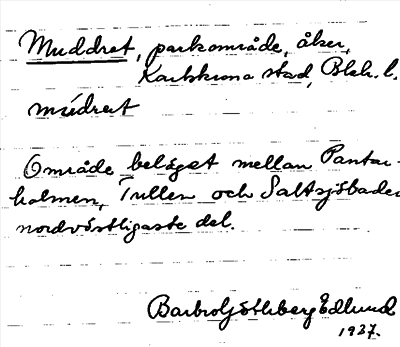 Muddret, parkområde, åker,
Karlskrona stad, Blek. l.
múdret
Område beläget mellan Pantar-
holmen, Tullen och Saltsjöbaden
nordvästligaste del.
Barbro Götheberg Edlund
1937.